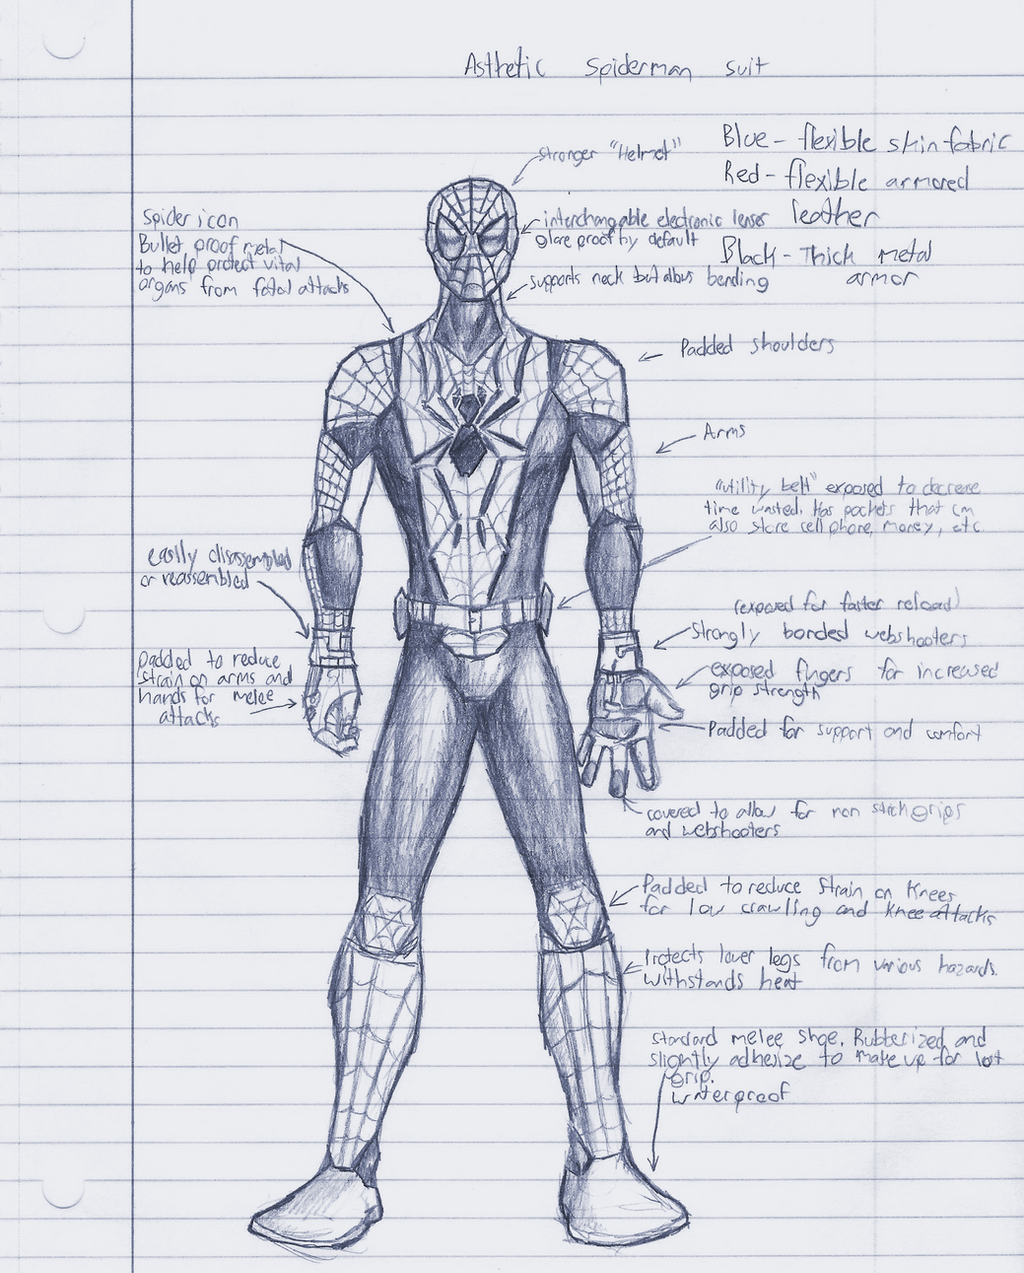 Asthetic Spiderman suit
Stronger "Helmet"
Blue - flexible skin fabric
Red - flexible armored
leather
Black - Thick metal
armor
interchangable electronic lenses
glare proof by default
supports neck but allows bending
spider icon
Bullet proof metal
to help protect vital
organs from fatal attacks
Padded shoulders
Arms
"utility belt" exposed to decrease
time wasted. Has pockets that can
also store cell phone, money, etc.
easily disassembled
or reassembled
(exposed for faster reload)
Strongly bonded webshooters
padded to reduce
strain on arms and
hands for melee
attacks
exposed fingers for increased
grip strength
Padded for support and comfort
covered to allow for non stick grips
and webshooters
Padded to reduce strain on knees
for low crawling and knee attacks
Protects lower legs from various hazards.
withstands heat
standard melee shoe. Rubberized and
slightly adhesize to make up for lost
grip.
waterproof